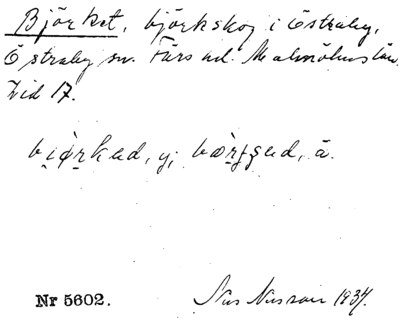 Björket, björkskog i Östraby,
Östraby sn. Färs hd. Malmöhus län.
Lid 17.
bịö̀ṛkad, y; bœ̀ṛʝʂad, ä.
Nr 5602. Nils Nilsson 1937.